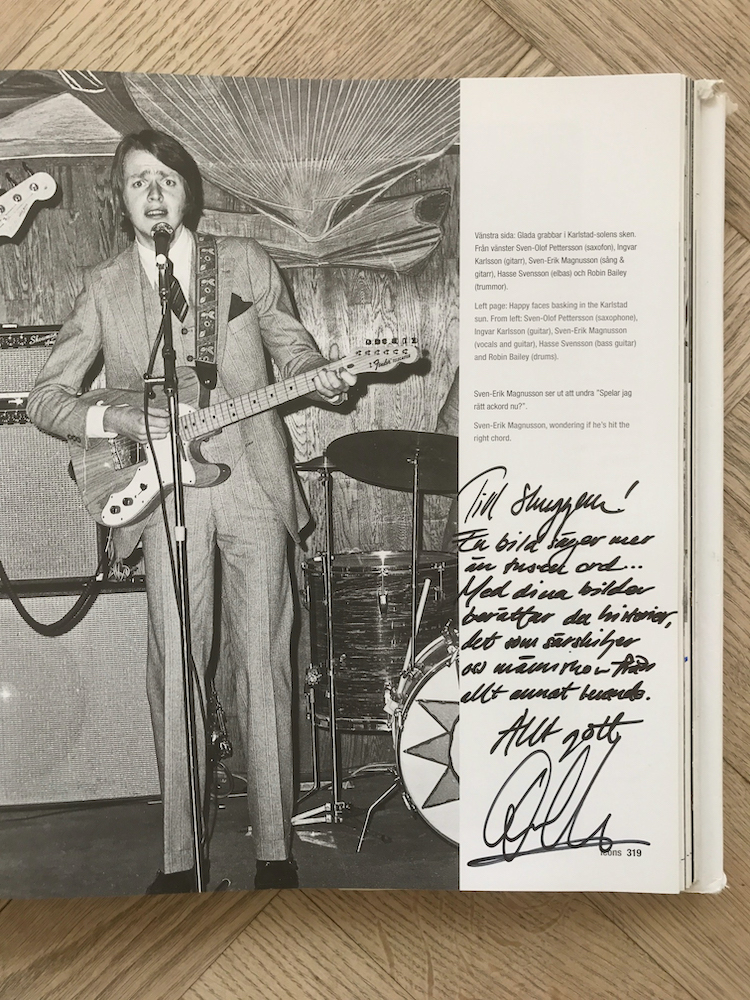 Vänstra sida: Glada grabbar i Karlstad-solens sken.
Från vänster Sven-Olof Pettersson (saxofon), Ingvar
Karlsson (gitarr), Sven-Erik Magnusson (sång &
gitarr), Hasse Svensson (elbas) och Robin Bailey
(trummor).
Left page: Happy faces basking in the Karlstad
sun. From left: Sven-Olof Pettersson (saxophone),
Ingvar Karlsson (guitar), Sven-Erik Magnusson
(vocals and guitar), Hasse Svensson (bass guitar)
and Robin Bailey (drums).
Sven-Erik Magnusson ser ut att undra "Spelar jag
rätt ackord nu?".
Sven-Erik Magnusson, wondering if he's hit the
right chord.
Fender
Till Skuggan!
En bild säger mer
än tusen ord...
Med dina bilder
berättar du historier,
det som särskiljer
oss människor från
allt annat levande.
Allt gott
Icons 319